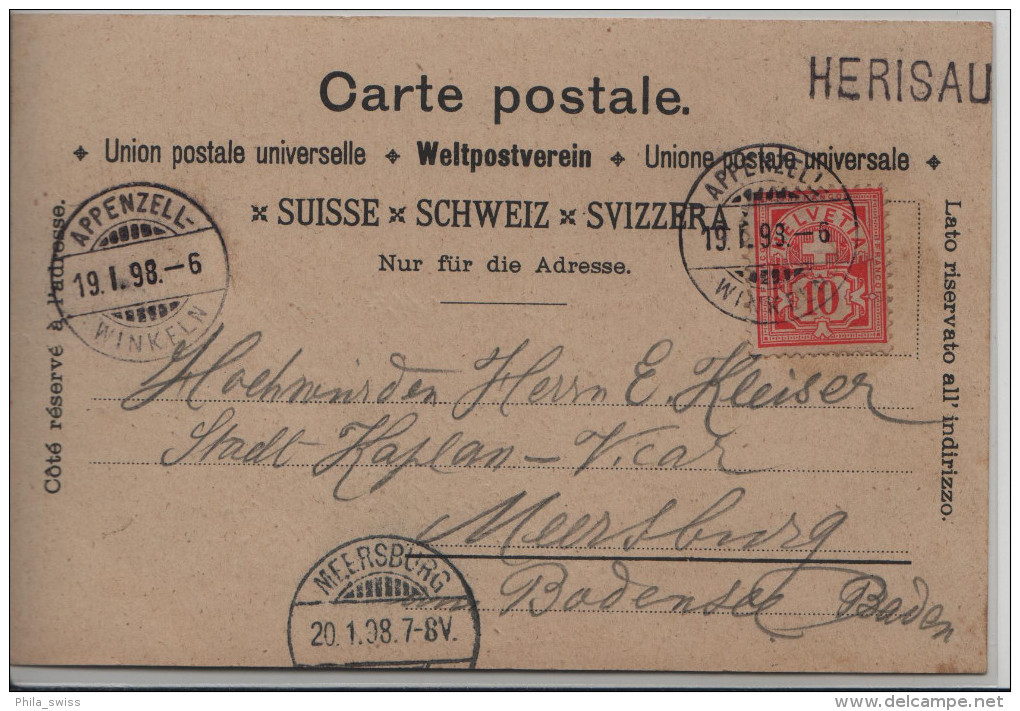 HERISAU
Carte postale.
Union postale universelle Weltpostverein Unione postale universale
SUISSE SCHWEIZ SVIZZERA
Nur für die Adresse.
Côté réservé à l'adresse.
Lato riservato all' indirizzo.
APPENZELL-
19.I.98.–6
WINKELN
APPENZELL-
19.I.98.–6
WINKELN
HELVETIA
FRANCO
10
Hochwürden Herrn E. Kleiser
Stadt Kaplan – Vicar
Meersburg
am Bodensee Baden
MEERSBURG
20.1.98.7-8V.
Phila_swiss
delcampe.net